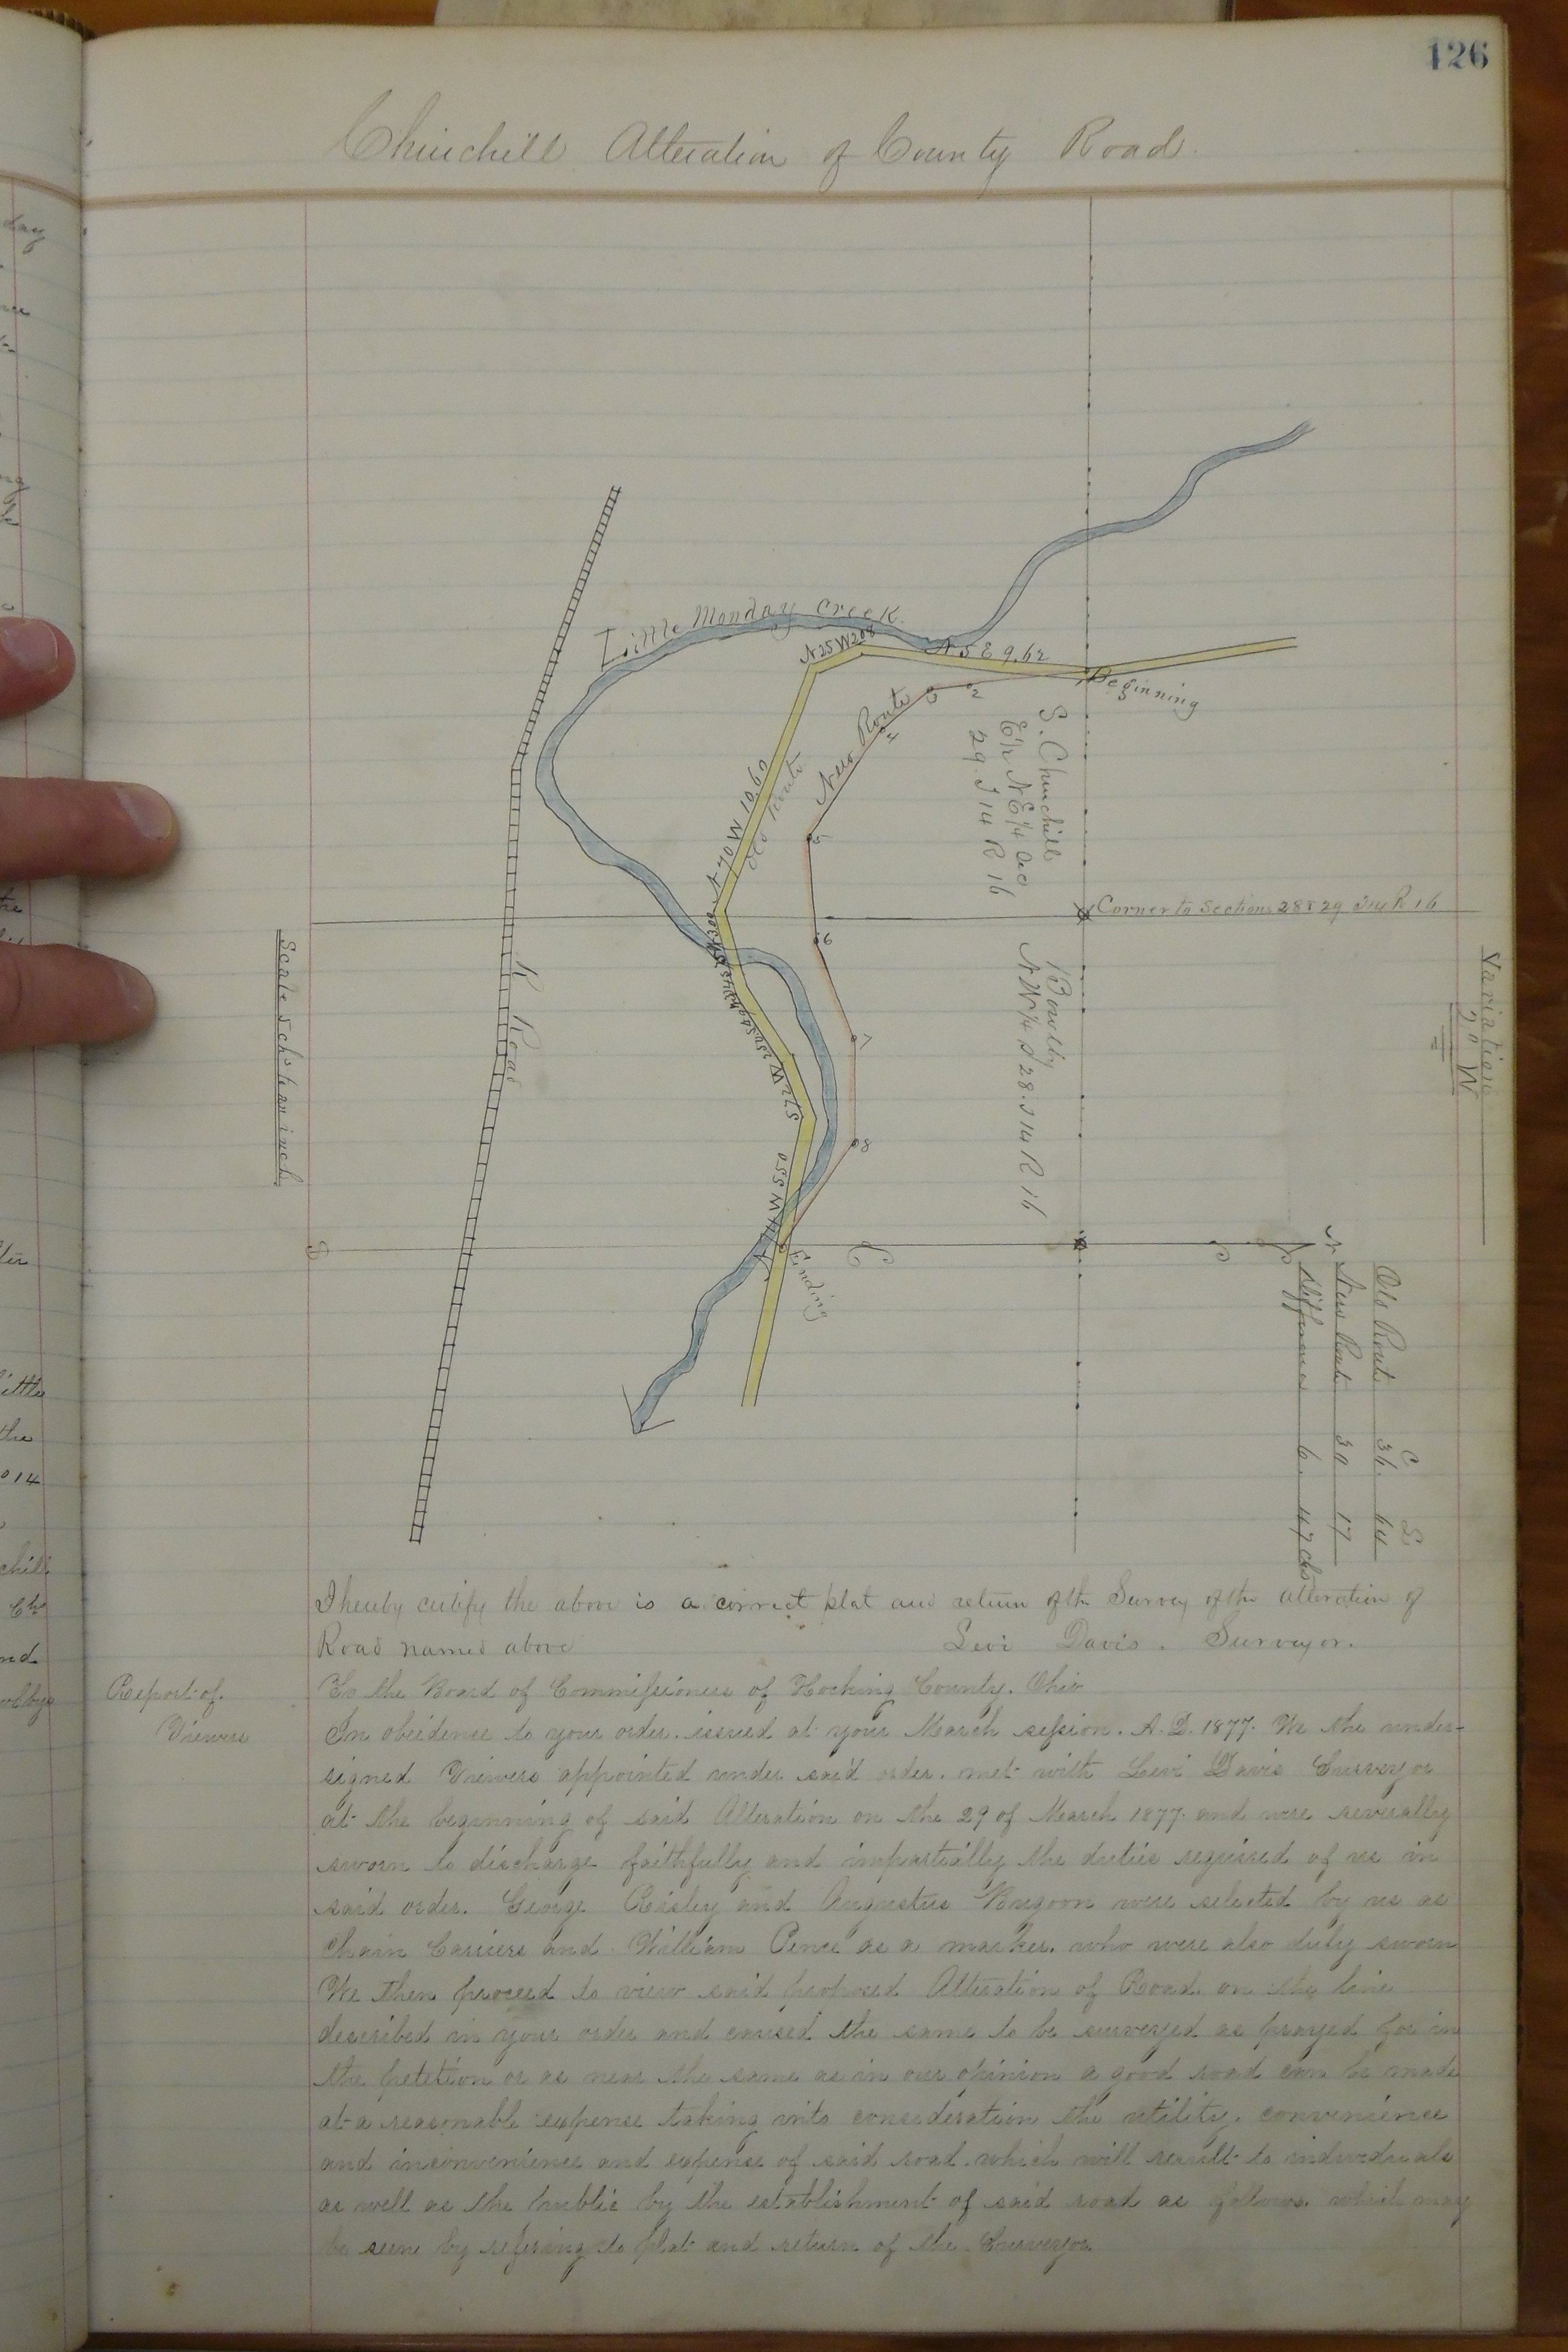 126
Churchill Alteration of County Road.
Little Monday Creek.
N 25 W 208
N 5 E 9.62
Beginning
New Route
2
3
4
5
6
7
8
N 70 W 10.60
Old Route
S. Churchill
E½ N E ¼ Sec
29. T 14 R 16
Corner to Sections 28 & 29 T 14 R 16
Bowlby
N W ¼ S 28. T 14 R 16
R Road
Scale 5 chs per inch
Variation
2° W
S 72 W
W 550
Ending
N
C L
Old Route 36. 64
New Route 30 17
Difference 6. 47 chs
I hereby certify the above is a correct plat and return of the Survey of the alteration of
Road named above Levi Davis. Surveyor.
Report of
Viewers
To the Board of Commissioners of Hocking County. Ohio
In obeidence to your order. issued at your March session. A. D. 1877. We the under-
signed Viewers appointed under said order. met with Levi Davis Surveyor
at the beginning of said Alteration on the 29 of March 1877. and were severally
sworn to discharge faithfully and impartially the duties required of us in
said order. George Risley and Augustus Burgoon were selected by us as
Chain Carriers and William Pence as a marker. who were also duly sworn
We then proceed to view said proposed Alteration of Road. on the line
described in your order and caused the same to be surveyed as prayed for in
the petition or as near the same as in our opinion a good road can be made
at a reasonable expense taking into consideration the utility, convenience
and inconvenience and expense of said road. which will result to individuals
as well as the public by the establishment of said road as follows. which may
be seen by refering to plat and return of the Surveyor